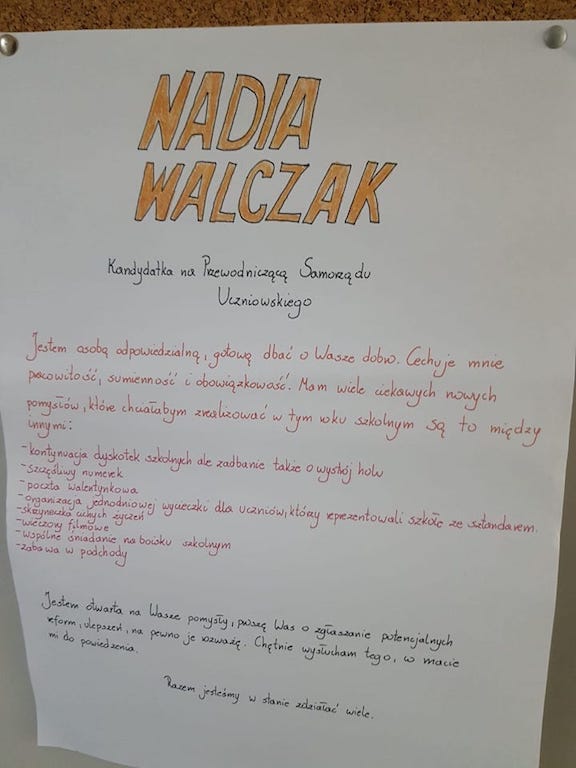 NADIA
WALCZAK
Kandydatka na Przewodniczącą Samorządu
Uczniowskiego
Jestem osobą odpowiedzialną, gotową dbać o Wasze dobro. Cechuje mnie
pracowitość, sumienność i obowiązkowość. Mam wiele ciekawych nowych
pomysłów, które chciałabym zrealizować w tym roku szkolnym są to między
innymi:
-kontynuacja dyskotek szkolnych ale zadbanie także o wystrój holu
-szczęśliwy numerek
-poczta walentynkowa
-organizacja jednodniowej wycieczki dla uczniów, którzy reprezentowali szkołę ze sztandarem.
-skrzyneczka cichych życzeń
-wieczory filmowe
-wspólne śniadanie na boisku szkolnym
-zabawa w podchody
Jestem otwarta na Wasze pomysły, proszę Was o zgłaszanie potencjalnych
reform, ulepszeń, na pewno je rozważę. Chętnie wysłucham tego, co macie
mi do powiedzenia.
Razem jesteśmy w stanie zdziałać wiele.